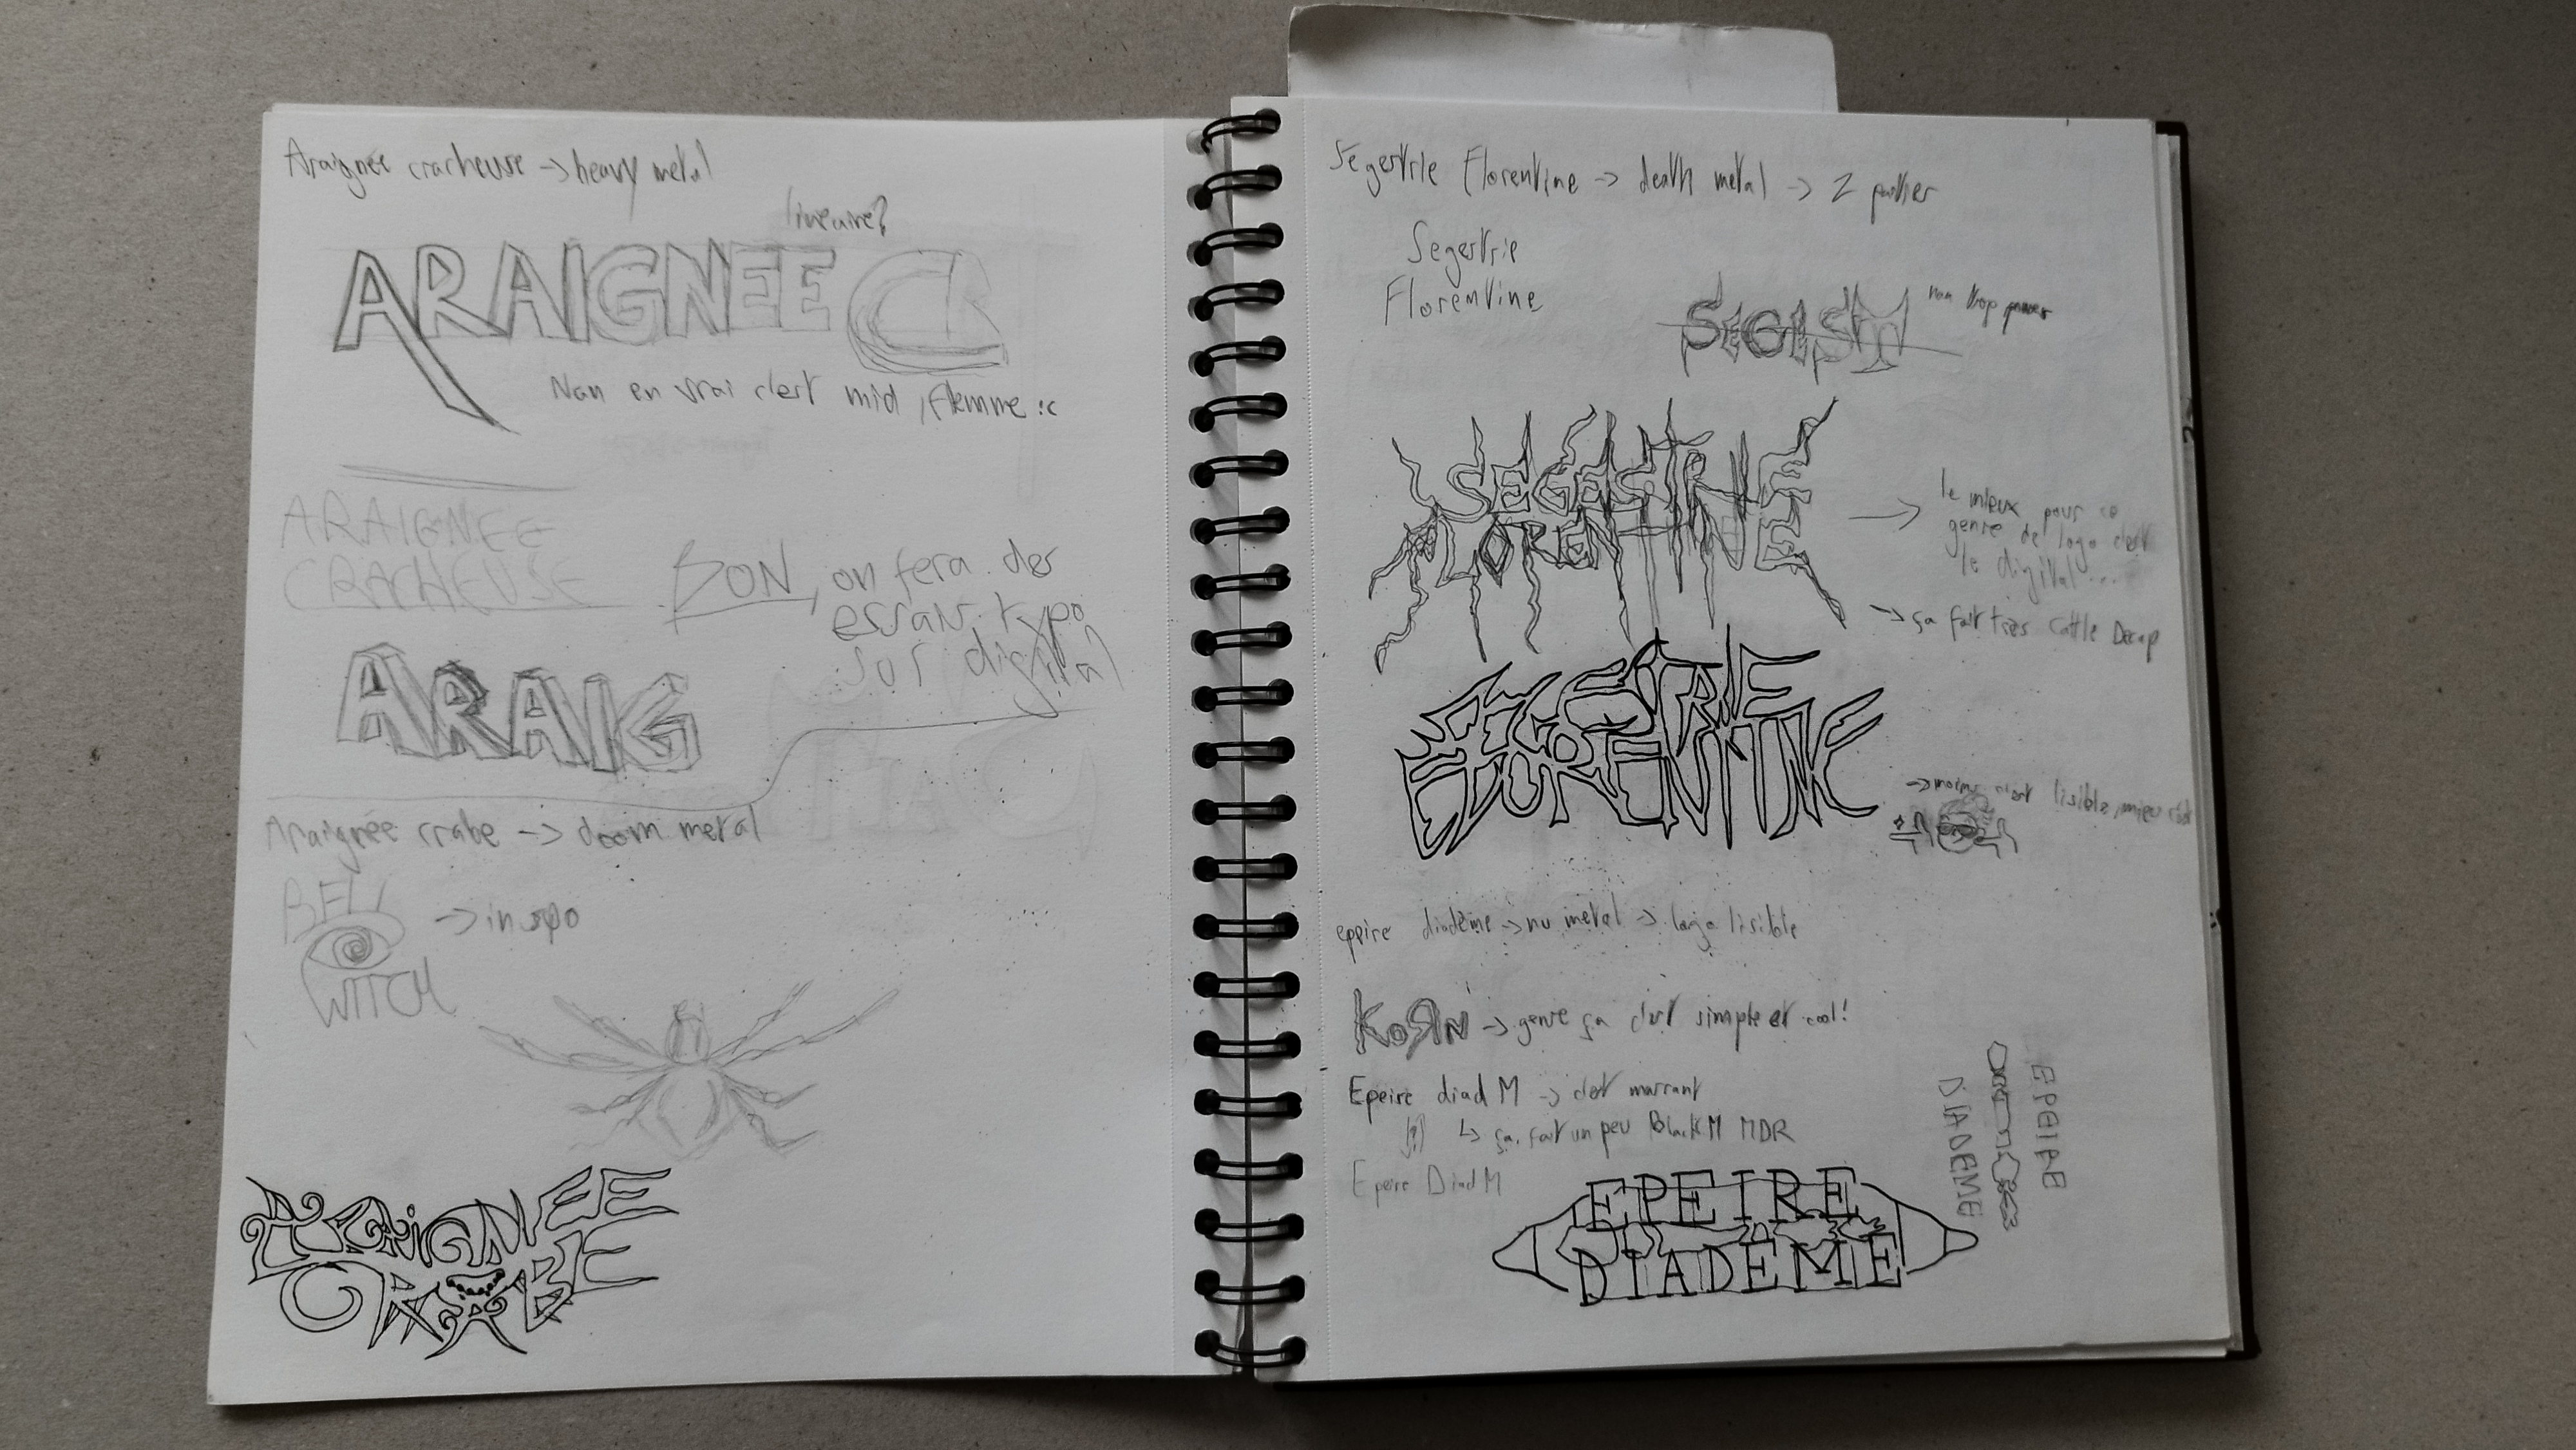 Araignée cracheuse -> heavy metal
lineaire?
ARAIGNEE CR
Nan en vrai c'est mid, flemme :c
ARAIGNEE
CRACHEUSE
BON, on fera des
essais typo
sur digital
ARAIG
Araignée crabe -> doom metal
BELL
WITCH
-> inspo
ARAIGNEE
CRABE
Segestrie Florentine -> death metal -> 2 parties
Segestrie
Florentine
SEGEST
nan trop
SEGESTRIE
FLORENTINE
-> le mieux pour ce
genre de logo c'est
le digital...
-> ça fait très Cattle Decap
SEGESTRIE
FLORENTINE
-> moins lisible, mieux
eppire diadème -> nu metal -> logo lisible
KoЯn -> genre ça c'est simple et cool!
Epeire diad M -> c'est marrant
(?) ↳ ça fait un peu Black M MDR
Epeire Diad M
EPEIRE
DIADEME
EPEIRE
DIADÈME